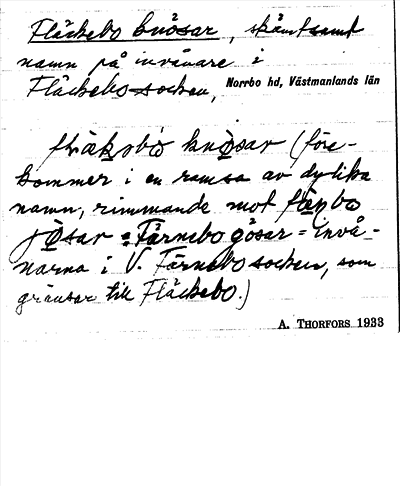 Fläckebo knösar, skämtsamt
namn på invånare i
Fläckebo socken, Norrbo hd, Västmanlands län
knösar (före-
kommer i en ramsa av dylika
namn, rimmande mot
jösar = Färnebo gösar = invå-
narna i V. Färnebo socken, som
gränsar till Fläckebo.)
A. THORFORS 1933